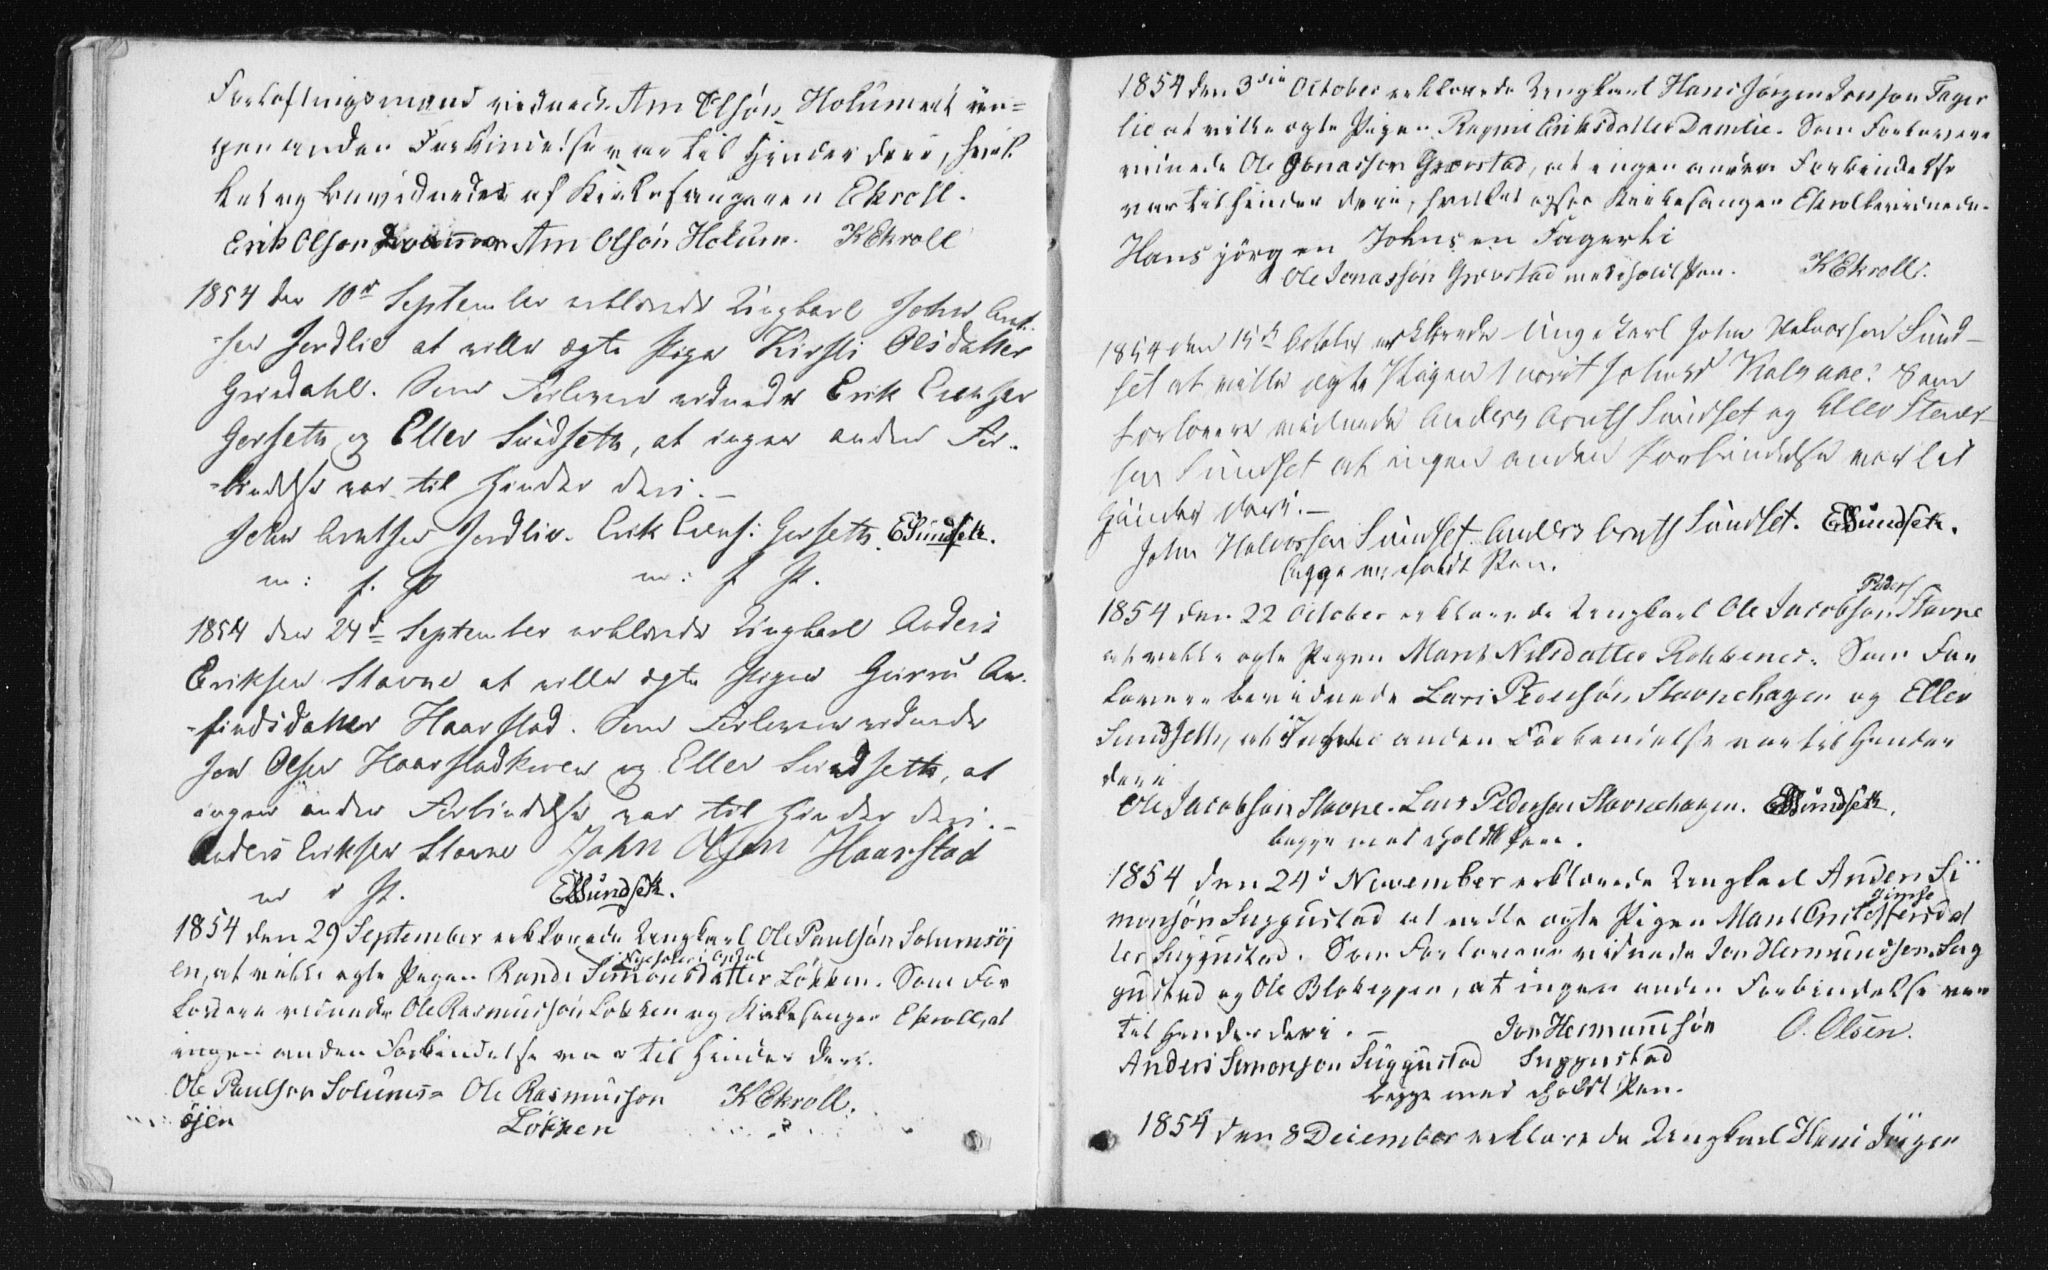 Forlofningsmand vidnede Arn Olsøn Holum at in-
gen anden Forbindelse var til Hinder deri, hvil-
ket og bevidnedes af Kirkesangeren Ekroll.
Erik Olson Arn Olsøn Holum. KEkroll
1854 den 10de September erklærede Ungkarl John Arnt-
sen Jordlie at ville ægte Pige Kirsti Olsdatter
Grindahl. Som Forlovere vidnede Erik Evensen
Gorseth og Eller Sundseth, at ingen anden For-
bindelse var til Hinder deri.—
John Arntsen Jordlie. Erik Evens: Gorseth. ESundseth.
m: f. P m: f P.
1854 den 24d September erklærede Ungkarl Anders
Eriksen Stavne at ville ægte Pigen Guru Ar-
findsdatter Haarstad. Som Forlovere vidnede
Jon Olsen Haarstad og Eller Sundseth, at
ingen anden Forbindelse var til Hinder deri.—
Anders Eriksen Stavne John Olsen Haarstad
m P. ESundseth.
1854 den 29 September erklærede Ungkarl Ole Paulsøn Solumsøj
en, at ville ægte Pigen Randi Simonsdatter Løkken. Som For
lovere vidnede Ole Rasmusøn Løkken og Kirkesanger Ekroll, at
ingen anden Forbindelse var til Hinder deri.
Ole Paulson Solums= Ole Rasmuson KEkroll.
øjen Løkken
1854 den 3die October erklærede Ungkarl Hans Jørgen Jonson Fager
lie at ville ægte Pigen Eriksdatter Damlie. Som Forlovere
vidnede Ole Jonasson Grøvstad, at ingen anden Forbindelse
var til Hinder deri, hvilket også Kirkesanger Ekroll bevidnede.
Hans jörgen Johnsen Fagerli
Ole Jonassøn Grøvstad med holdt Pen. KEkroll.
1854 den 15d October erklærede Ungekarl John Halvorsen Sund-
set at ville ægte Pigen Johns Som
Forlovere vidnede Anders Arnts Sundset og Eller
sen Sundset at ingen anden Forbindelse var til
Hinder deri.—
John Halvorsen Sundset. Anders Arnts Sundset. ESundseth.
begge m: holdt Pen.
Peders
1854 den 22 October erklærede Ungkarl Ole Jacobson Stavne
at ville ægte Pigen Marit Nilsdatter. Som For
lovere bevidnede Lars Pedersøn Stavnehagen og Eller
Sundseth, at Ingen anden Forbindelse var til Hinder
deri
Ole Jacobson Stavne. Lars Pederson Stavnehagen. ESundseth.
begge med holdt Pen.
1854 den 24d November erklærede Ungkarl Anders Si
monsøn Suggustad at ville ægte Pigen Marit Cristoffersdat
ter Suggustad. Som Forlovere vidnede Jon Hermundsen Sug
gustad og Ole Blokeggen, at ingen anden Forbindelse var
til Hinder deri.— Jon Hermunnsøn O. Olsen.
Anders Simonson Suggustad Suggustad
begge med holdt Pen.
1854 den 8 December erklærede Ungkarl Hans Jörgen